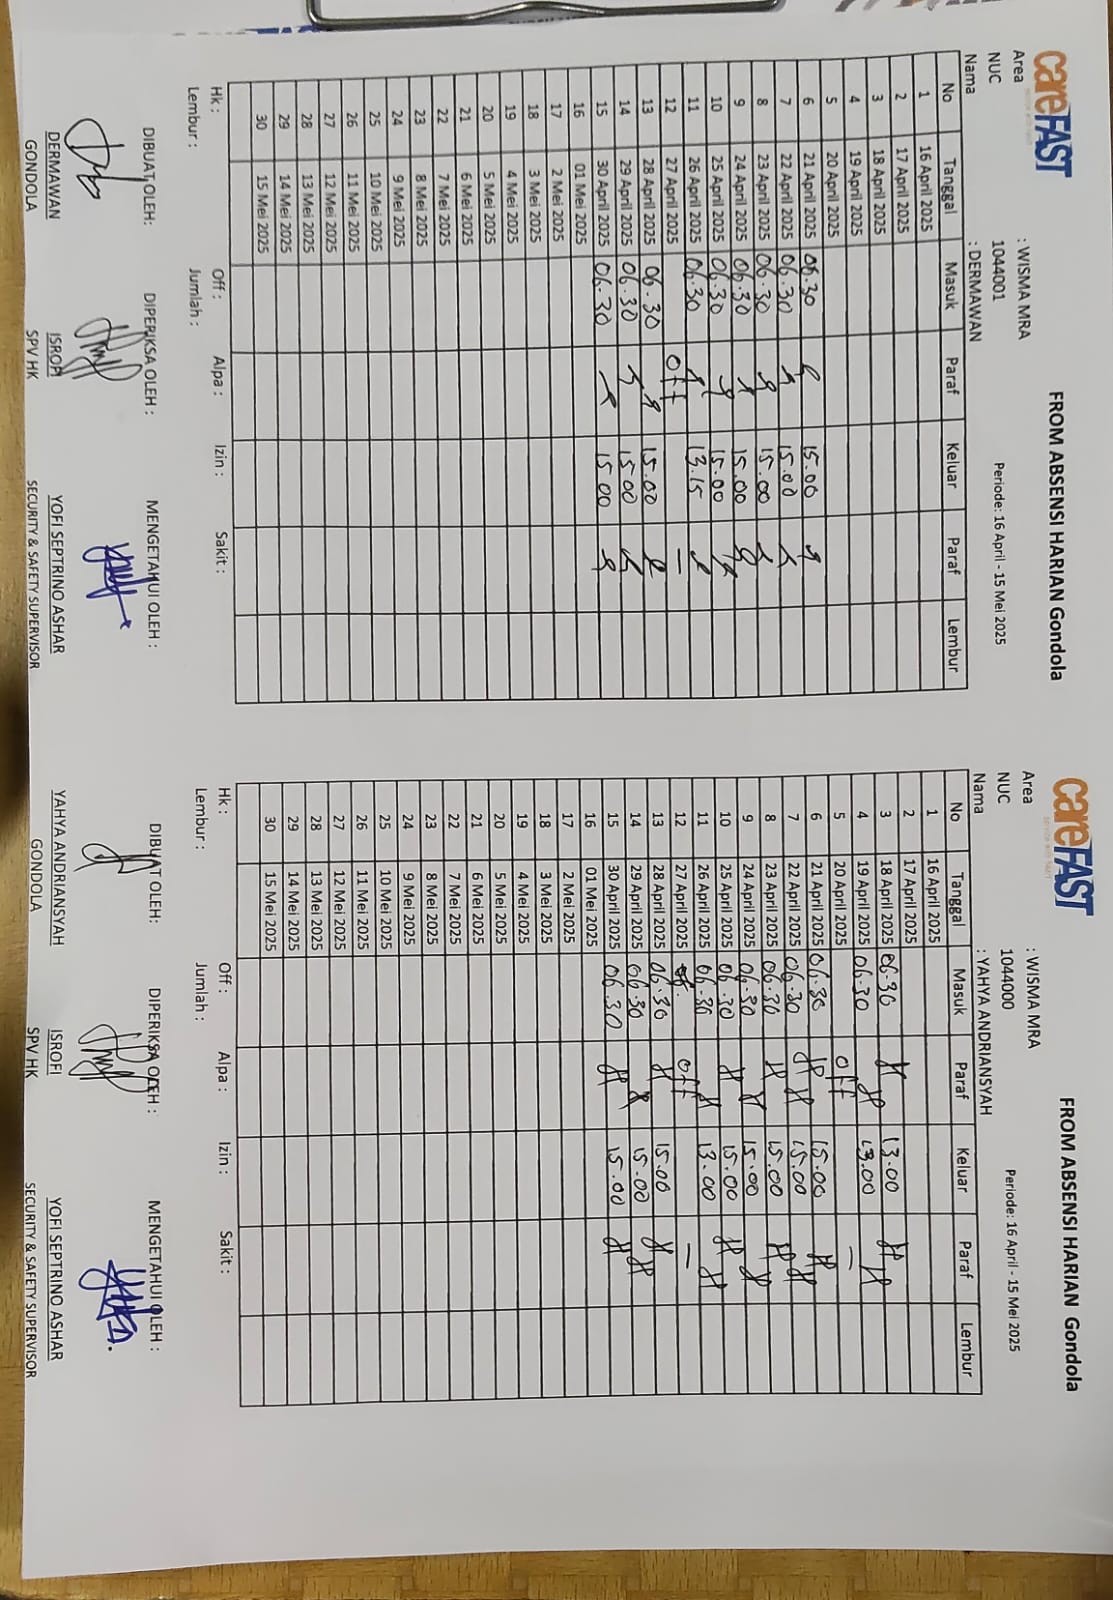 careFAST
FROM ABSENSI HARIAN Gondola
Area : WISMA MRA
NUC 1044001 Periode: 16 April - 15 Mei 2025
Nama : DERMAWAN
No Tanggal Masuk Paraf Keluar Paraf Lembur
1 16 April 2025
2 17 April 2025
3 18 April 2025
4 19 April 2025
5 20 April 2025
6 21 April 2025 06.30 15.00
7 22 April 2025 06.30 15.00
8 23 April 2025 06.30 15.00
9 24 April 2025 06.30 15.00
10 25 April 2025 06.30 15.00
11 26 April 2025 06.30 13.15
12 27 April 2025 off —
13 28 April 2025 06.30 15.00
14 29 April 2025 06.30 15.00
15 30 April 2025 06.30 15.00
16 01 Mei 2025
17 2 Mei 2025
18 3 Mei 2025
19 4 Mei 2025
20 5 Mei 2025
21 6 Mei 2025
22 7 Mei 2025
23 8 Mei 2025
24 9 Mei 2025
25 10 Mei 2025
26 11 Mei 2025
27 12 Mei 2025
28 13 Mei 2025
29 14 Mei 2025
30 15 Mei 2025
Hk : Off : Alpa : Izin : Sakit :
Lembur : Jumlah :
DIBUAT OLEH: DIPERIKSA OLEH : MENGETAHUI OLEH :
DERMAWAN ISROFI YOFI SEPTRINO ASHAR
GONDOLA SPV HK SECURITY & SAFETY SUPERVISOR
careFAST
FROM ABSENSI HARIAN Gondola
Area : WISMA MRA
NUC 1044000 Periode: 16 April - 15 Mei 2025
Nama : YAHYA ANDRIANSYAH
No Tanggal Masuk Paraf Keluar Paraf Lembur
1 16 April 2025
2 17 April 2025
3 18 April 2025 06.30 13.00
4 19 April 2025 06.30 13.00
5 20 April 2025 off —
6 21 April 2025 06.30 15.00
7 22 April 2025 06.30 15.00
8 23 April 2025 06.30 15.00
9 24 April 2025 06.30 15.00
10 25 April 2025 06.30 15.00
11 26 April 2025 06.30 13.00
12 27 April 2025 off —
13 28 April 2025 06.30 15.00
14 29 April 2025 06.30 15.00
15 30 April 2025 06.30 15.00
16 01 Mei 2025
17 2 Mei 2025
18 3 Mei 2025
19 4 Mei 2025
20 5 Mei 2025
21 6 Mei 2025
22 7 Mei 2025
23 8 Mei 2025
24 9 Mei 2025
25 10 Mei 2025
26 11 Mei 2025
27 12 Mei 2025
28 13 Mei 2025
29 14 Mei 2025
30 15 Mei 2025
Hk : Off : Alpa : Izin : Sakit :
Lembur : Jumlah :
DIBUAT OLEH: DIPERIKSA OLEH : MENGETAHUI OLEH :
YAHYA ANDRIANSYAH ISROFI YOFI SEPTRINO ASHAR
GONDOLA SPV HK SECURITY & SAFETY SUPERVISOR